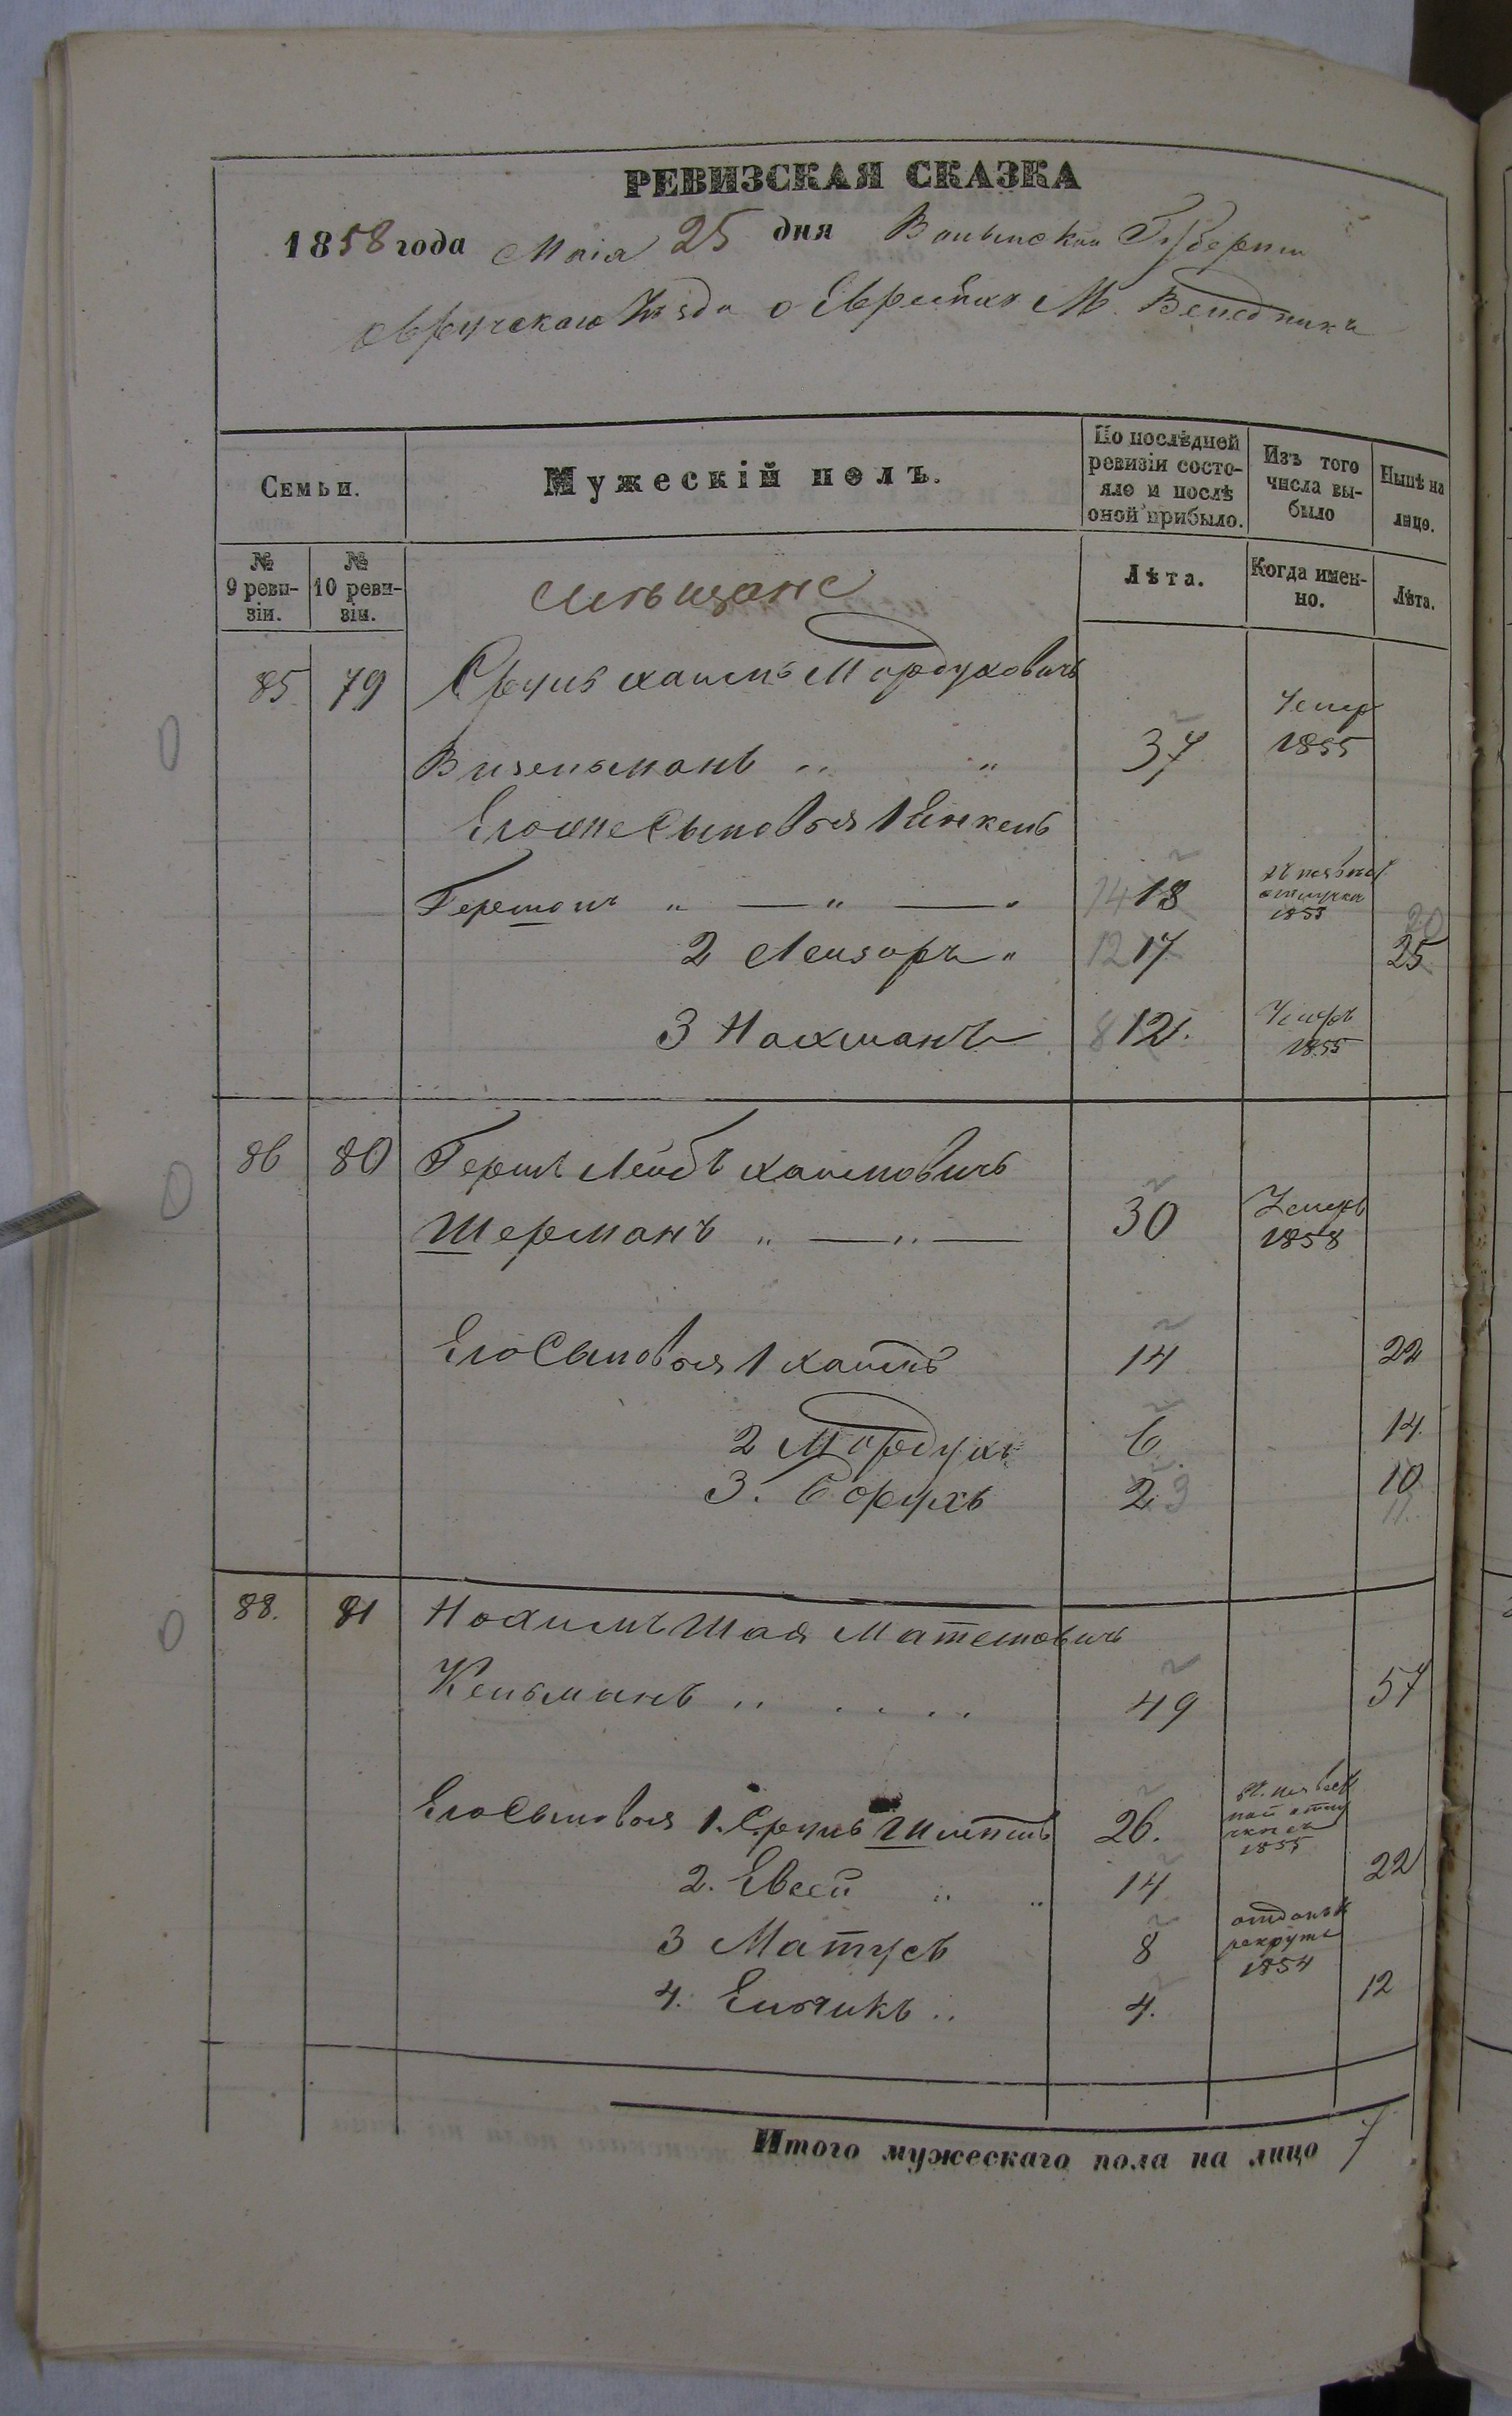 РЕВИЗСКАЯ СКАЗКА
1858 года Маія 25 дня Волынской Губерніи
Овручскаго Уѣзда о Евреяхъ М. Веледникъ
Семьи.
Мужескій полъ.
По послѣдней ревизіи состояло и послѣ оной прибыло.
Изъ того числа выбыло
Нынѣ на лицо.
№ 9 ревизіи.
№ 10 ревизіи.
Мѣщане
Лѣта.
Когда именно.
Лѣта.
85 79 Сруль Хаимъ Мордуховичъ
Визельманъ „ „ 37 Умер 1855
Его же Сыновья 1 Янкель
Гершонъ „ — „ — „ 14 18 отлучки 1853
2 Лейзоръ „ 12 17 20 25
3 Нахманъ 8 12. Умеръ 1855
86 80 Гершъ Лейбъ Хаимовичъ
Шерманъ „ — „ — 30 Умеръ 1858
Его Сыновья 1 Хаимъ 14 22
2 Мордухъ 6 14.
3. Борухъ 2 3 10 11.
88. 81 Нохимъ Шая Матешовичъ
Кельманъ „ . . . . 49 57
Его Сыновья 1. Сруль 26. 1855
2. Евсей „ „ 14 22
3 Матусъ 8 отданъ в рекруты 1854
4. Ельчикъ „ 4. 12
Итого мужескаго пола на лицо 7